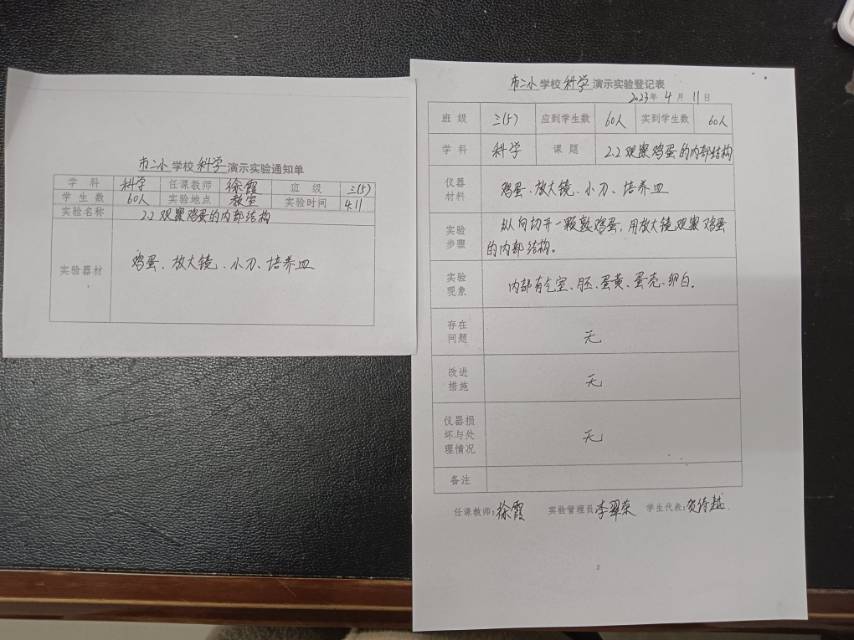 市二小学校科学演示实验通知单
学科 科学 任课教师 徐霞 班级 三(5)
学生数 60人 实验地点 教室 实验时间 4.11
实验名称 2.2 观察鸡蛋的内部结构
实验器材 鸡蛋、放大镜、小刀、培养皿
市二小学校科学演示实验登记表
2023年4月11日
班级 三(5) 应到学生数 60人 实到学生数 60人
学科 科学 课题 2.2 观察鸡蛋的内部结构
仪器
材料
鸡蛋、放大镜、小刀、培养皿
实验
步骤
纵向切开一颗熟鸡蛋,用放大镜观察鸡蛋
的内部结构。
实验
现象
内部有气室、胚、蛋黄、蛋壳、卵白。
存在
问题
无
改进
措施
无
仪器损
坏与处
理情况
无
备注
任课教师:徐霞 实验管理员:李翠荣 学生代表:
2